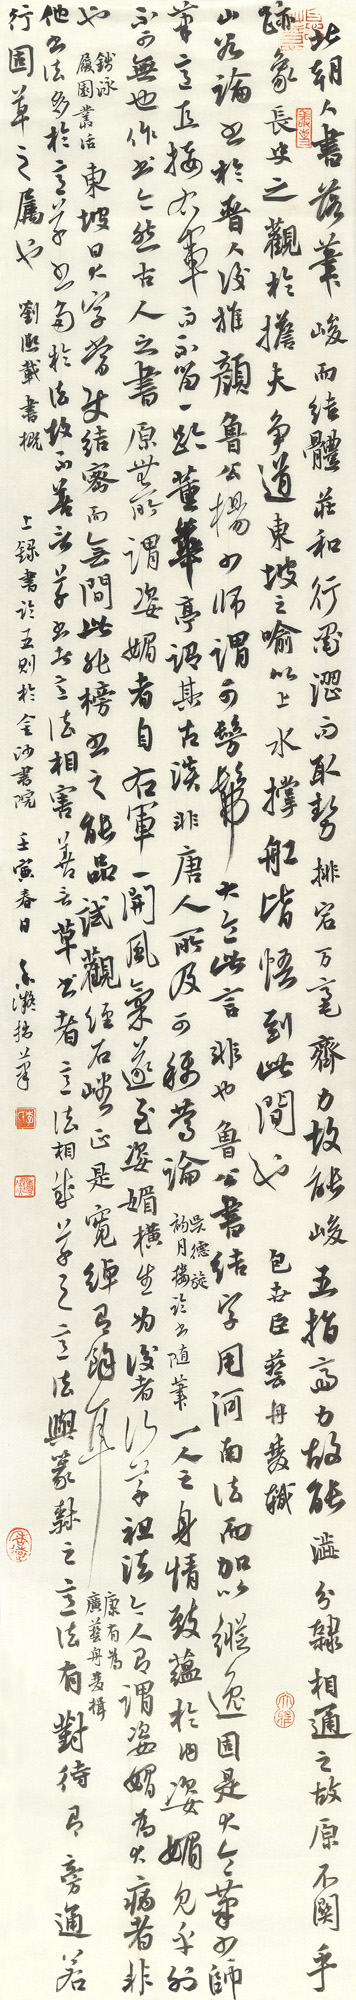 北朝人書落筆峻而結體莊和行墨澀而取勢排宕万毫齊力故能峻五指齊力故能澀分隸相通之故原不關乎
跡象長史之觀於擔夫爭道東坡之喻以上水撐船皆悟到此間也 包世臣藝舟雙楫
山谷論書於晉人後推顏魯公楊少師謂可髣髴大令此言非也魯公書結字用河南法而加以縱逸固是大令筆少師
筆意直接右軍而不留一跡董華亭謂其古淡非唐人所及可稱篤論 吳德旋初月樓論書隨筆 一人之身情致蘊於內姿媚見乎外
不可無也作書亦然古人之書原無所謂姿媚者自右軍一開風氣遂至姿媚橫生為後者行草祖法今人有謂姿媚為大病者非
也 錢泳履園叢話 東坡曰大字當使結密而無間此非榜書之能品試觀經石峪正是寬綽有餘耳 康有為廣藝舟雙楫
他書法多於意草書意多於法故不善言草者意法相害善言草書者意法相成草之意法與篆隸之意法有對待有旁通若
行固草之屬也 劉熙載書概 上錄書論五則於金沙書院 壬寅春日